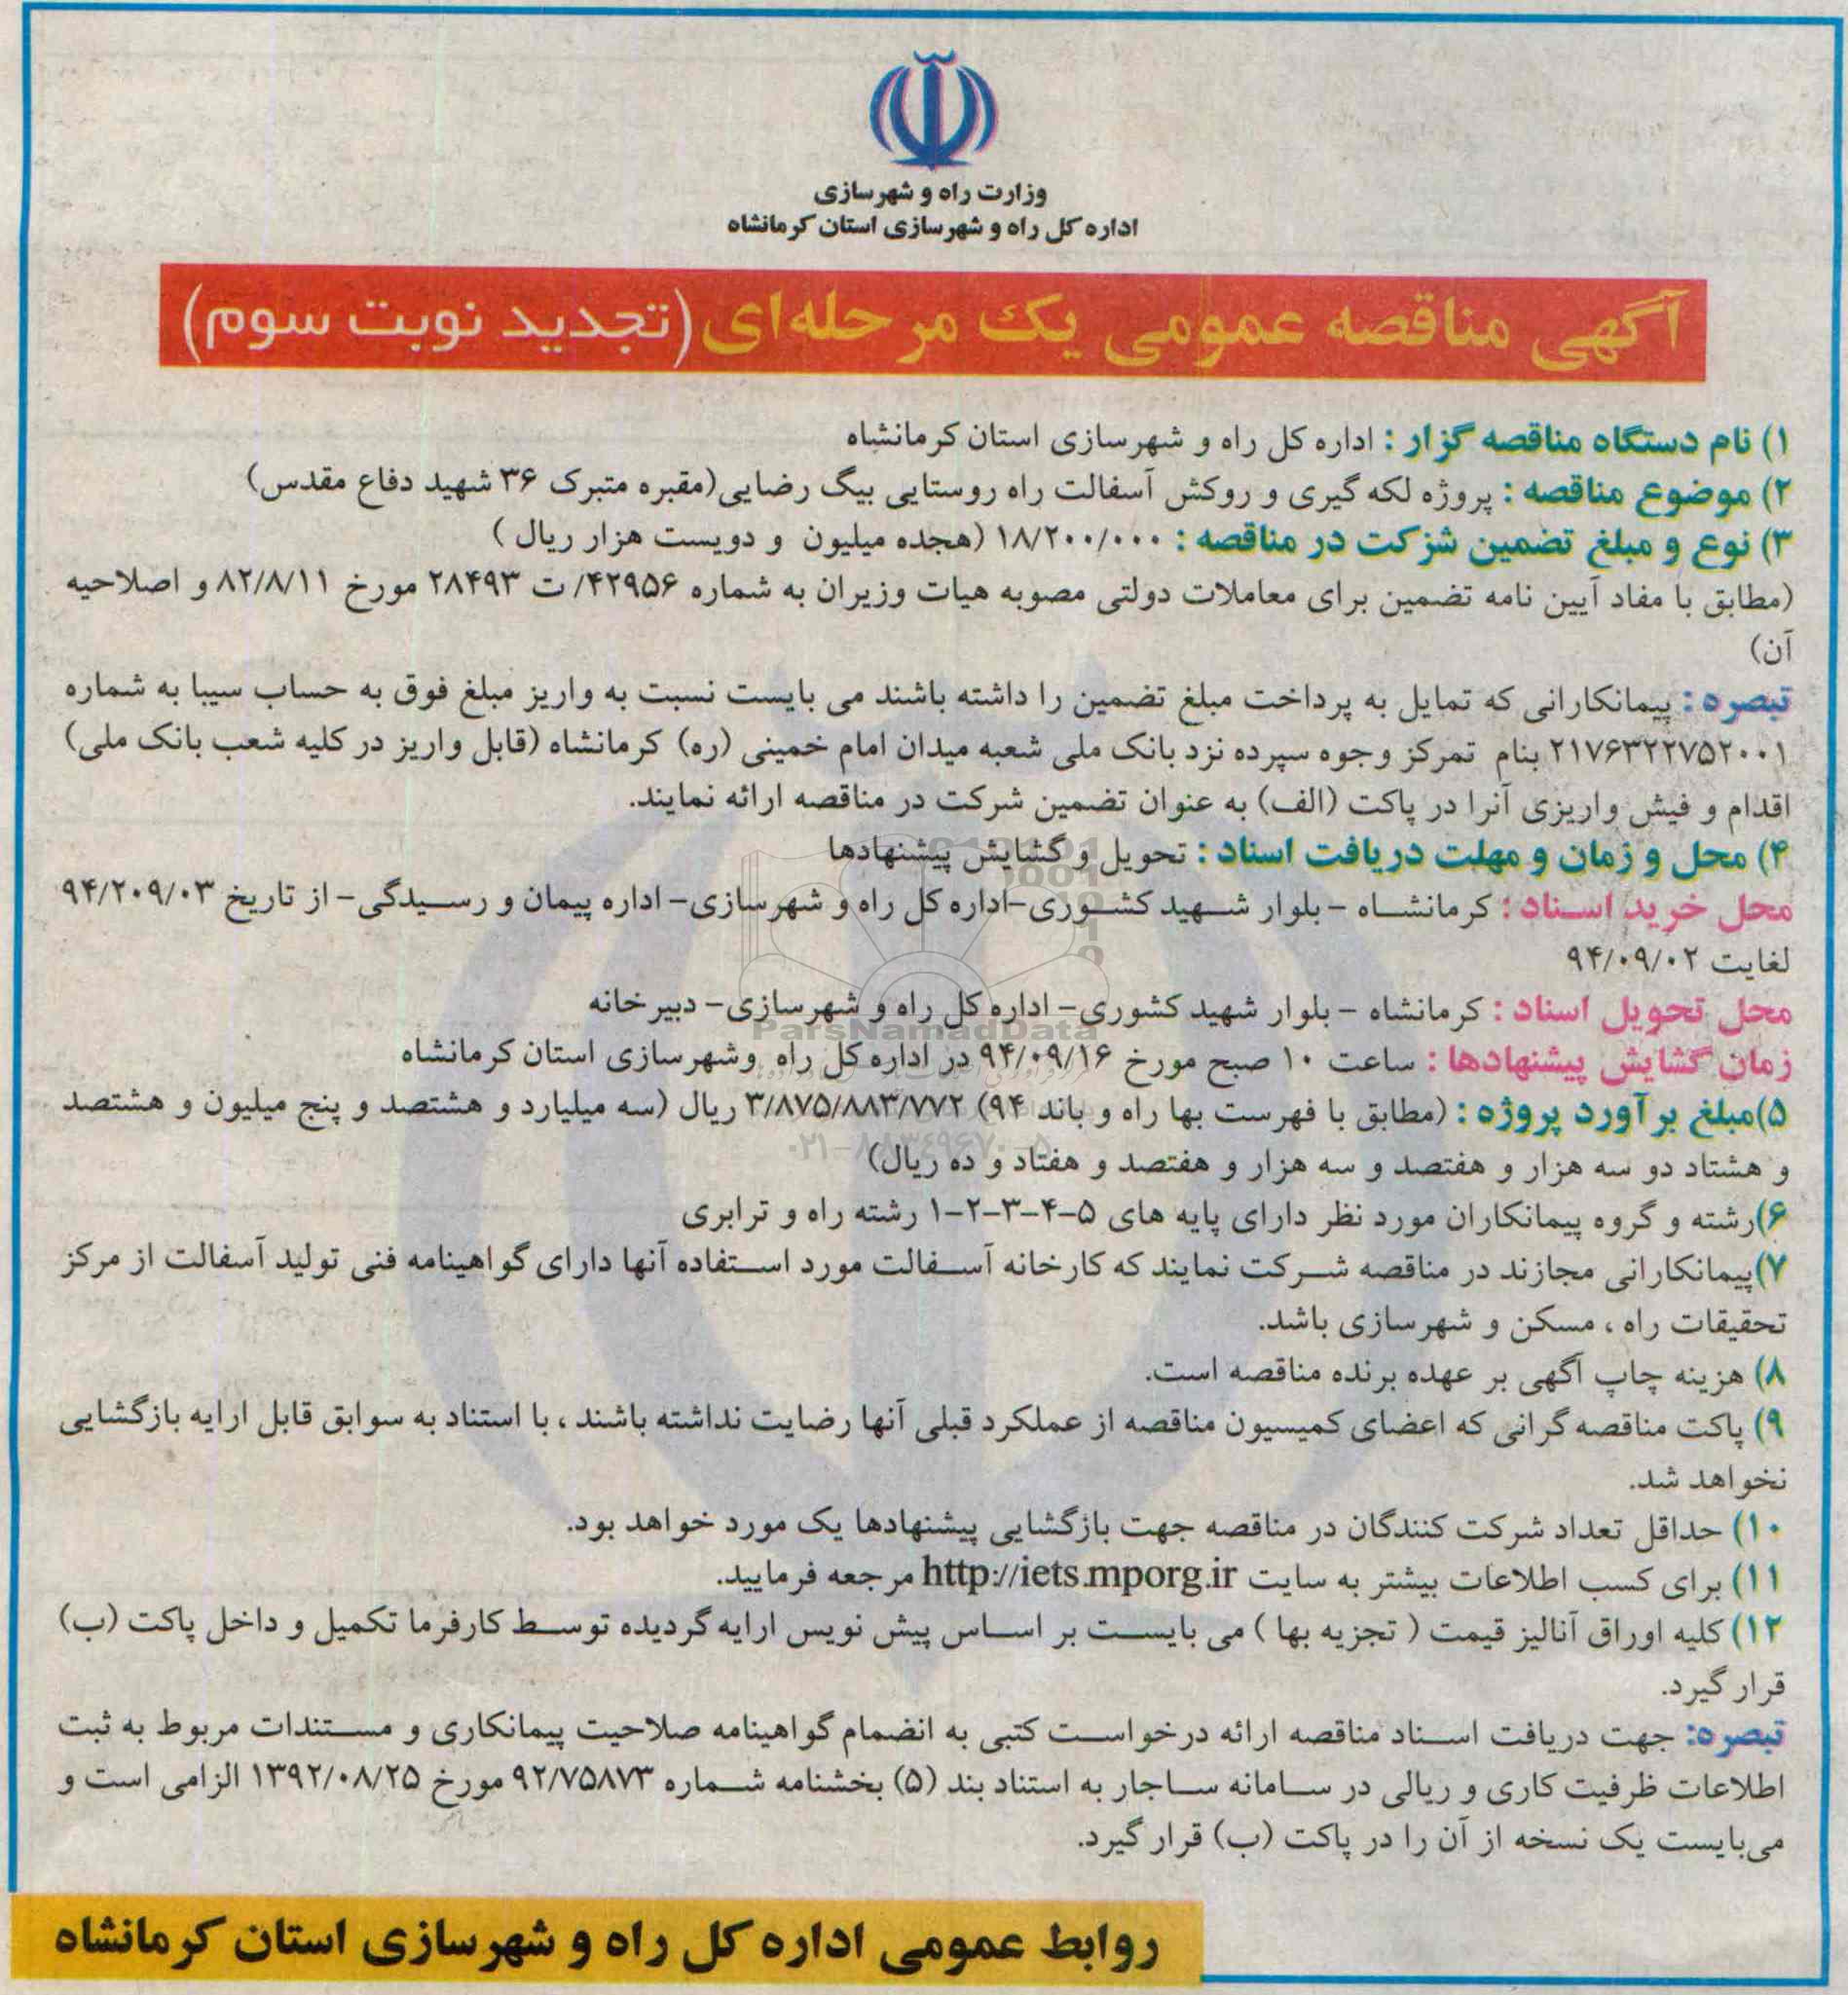 وزارت راه و شهرسازی
اداره کل راه و شهرسازی استان کرمانشاه
آگهی مناقصه عمومی یک مرحله‌ای (تجدید نوبت سوم)
۱) نام دستگاه مناقصه گزار : اداره کل راه و شهرسازی استان کرمانشاه
۲) موضوع مناقصه : پروژه لکه گیری و روکش آسفالت راه روستایی بیگ رضایی(مقبره متبرک ۳۶ شهید دفاع مقدس)
۳) نوع و مبلغ تضمین شزکت در مناقصه : ۱۸/۲۰۰/۰۰۰ (هجده میلیون و دویست هزار ریال )
(مطابق با مفاد آیین نامه تضمین برای معاملات دولتی مصوبه هیات وزیران به شماره ۴۲۹۵۶/ ت ۲۸۴۹۳ مورخ ۸۲/۸/۱۱ و اصلاحیه
آن)
تبصره : پیمانکارانی که تمایل به پرداخت مبلغ تضمین را داشته باشند می بایست نسبت به واریز مبلغ فوق به حساب سیبا به شماره
۲۱۷۶۳۲۲۷۵۲۰۰۱ بنام تمرکز وجوه سپرده نزد بانک ملی شعبه میدان امام خمینی (ره) کرمانشاه (قابل واریز در کلیه شعب بانک ملی)
اقدام و فیش واریزی آنرا در پاکت (الف) به عنوان تضمین شرکت در مناقصه ارائه نمایند.
۴) محل و زمان و مهلت دریافت اسناد : تحویل و گشایش پیشنهادها
محل خرید اسناد : کرمانشاه - بلوار شهید کشوری-اداره کل راه و شهرسازی- اداره پیمان و رسیدگی- از تاریخ ۹۴/۲۰۹/۰۳
لغایت ۹۴/۰۹/۰۲
محل تحویل اسناد : کرمانشاه - بلوار شهید کشوری- اداره کل راه و شهرسازی- دبیرخانه
ParsNamadData
زمان گشایش پیشنهادها : ساعت ۱۰ صبح مورخ ۹۴/۰۹/۱۶ در اداره کل راه وشهرسازی استان کرمانشاه
۵)مبلغ برآورد پروژه : (مطابق با فهرست بها راه و باند ۹۴) ۳/۸۷۵/۸۸۳/۷۷۲ ریال (سه میلیارد و هشتصد و پنج میلیون و هشتصد
۰۲۱-۸۸۳۴۹۶۷۰-۵
و هشتاد دو سه هزار و هفتصد و سه هزار و هفتصد و هفتاد و ده ریال)
۶)رشته و گروه پیمانکاران مورد نظر دارای پایه های ۵-۴-۳-۲-۱ رشته راه و ترابری
۷)پیمانکارانی مجازند در مناقصه شرکت نمایند که کارخانه آسفالت مورد استفاده آنها دارای گواهینامه فنی تولید آسفالت از مرکز
تحقیقات راه ، مسکن و شهرسازی باشد.
۸) هزینه چاپ آگهی بر عهده برنده مناقصه است.
۹) پاکت مناقصه گرانی که اعضای کمیسیون مناقصه از عملکرد قبلی آنها رضایت نداشته باشند ، با استناد به سوابق قابل ارایه بازگشایی
نخواهد شد.
۱۰) حداقل تعداد شرکت کنندگان در مناقصه جهت بازگشایی پیشنهادها یک مورد خواهد بود.
۱۱) برای کسب اطلاعات بیشتر به سایت http://iets.mporg.ir مرجعه فرمایید.
۱۲) کلیه اوراق آنالیز قیمت ( تجزیه بها ) می بایست بر اساس پیش نویس ارایه گردیده توسط کارفرما تکمیل و داخل پاکت (ب)
قرار گیرد.
تبصره: جهت دریافت اسناد مناقصه ارائه درخواست کتبی به انضمام گواهینامه صلاحیت پیمانکاری و مستندات مربوط به ثبت
اطلاعات ظرفیت کاری و ریالی در سامانه ساجار به استناد بند (۵) بخشنامه شماره ۹۲/۷۵۸۷۳ مورخ ۱۳۹۲/۰۸/۲۵ الزامی است و
می‌بایست یک نسخه از آن را در پاکت (ب) قرار گیرد.
روابط عمومی اداره کل راه و شهرسازی استان کرمانشاه